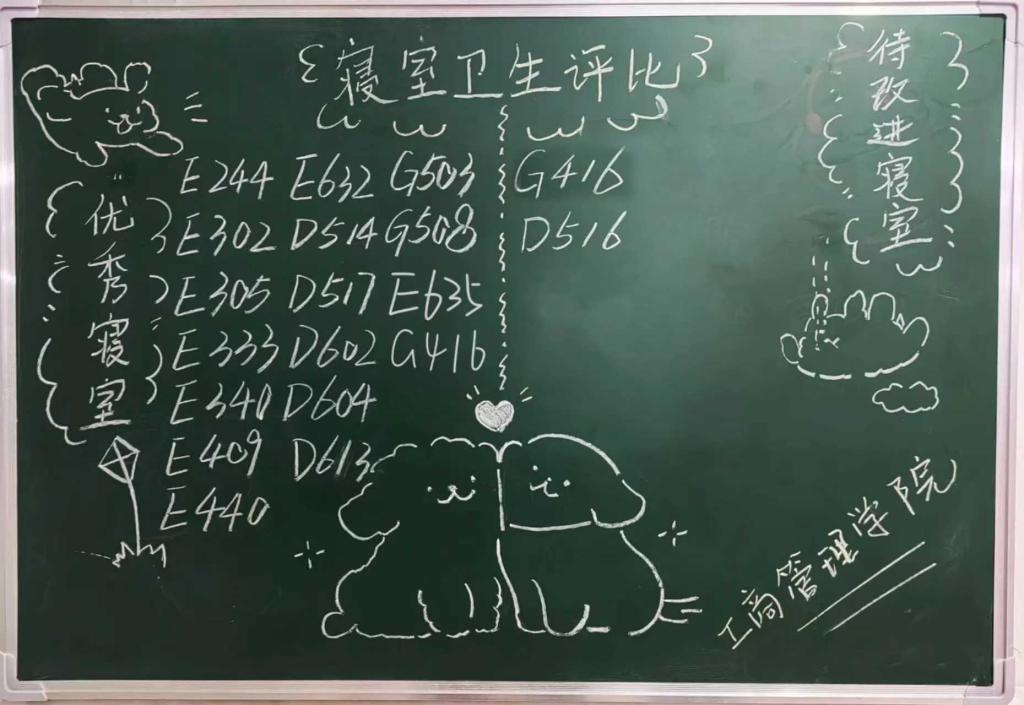 寝室卫生评比
优秀寝室
E244 E632 G503
E302 D514 G508
E305 D517 E635
E333 D602 G416
E340 D604
E409 D613
E440
待改进寝室
G416
D516
工商管理学院